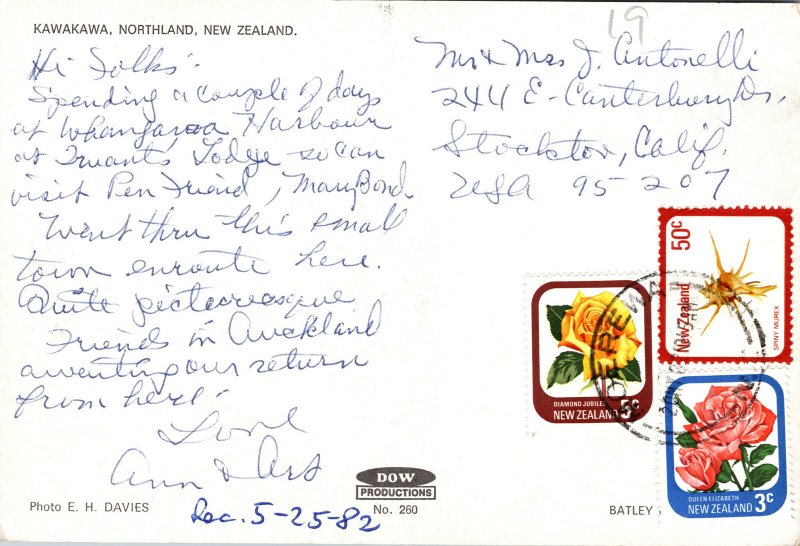 KAWAKAWA, NORTHLAND, NEW ZEALAND.
Hi Folks:
Spending a couple of days
at Whangaroa Harbour
at Truants Lodge so can
visit Pen Friend, Mary Bond.
Went thru this small
town enroute here.
Quite picturesque
Friends in Auckland
awaiting our return
from here!
Love
Ann & Art
19
Mr & Mrs J. Antonelli
244 E-Canterbury Dr,
Stockton, Calif.
USA 95-207
50c
New Zealand
SPINY MUREX
DIAMOND JUBILEE
5c
NEW ZEALAND
QUEEN ELIZABETH
3c
NEW ZEALAND
Photo E. H. DAVIES
Rec. 5-25-82
DOW
PRODUCTIONS
No. 260
BATLEY